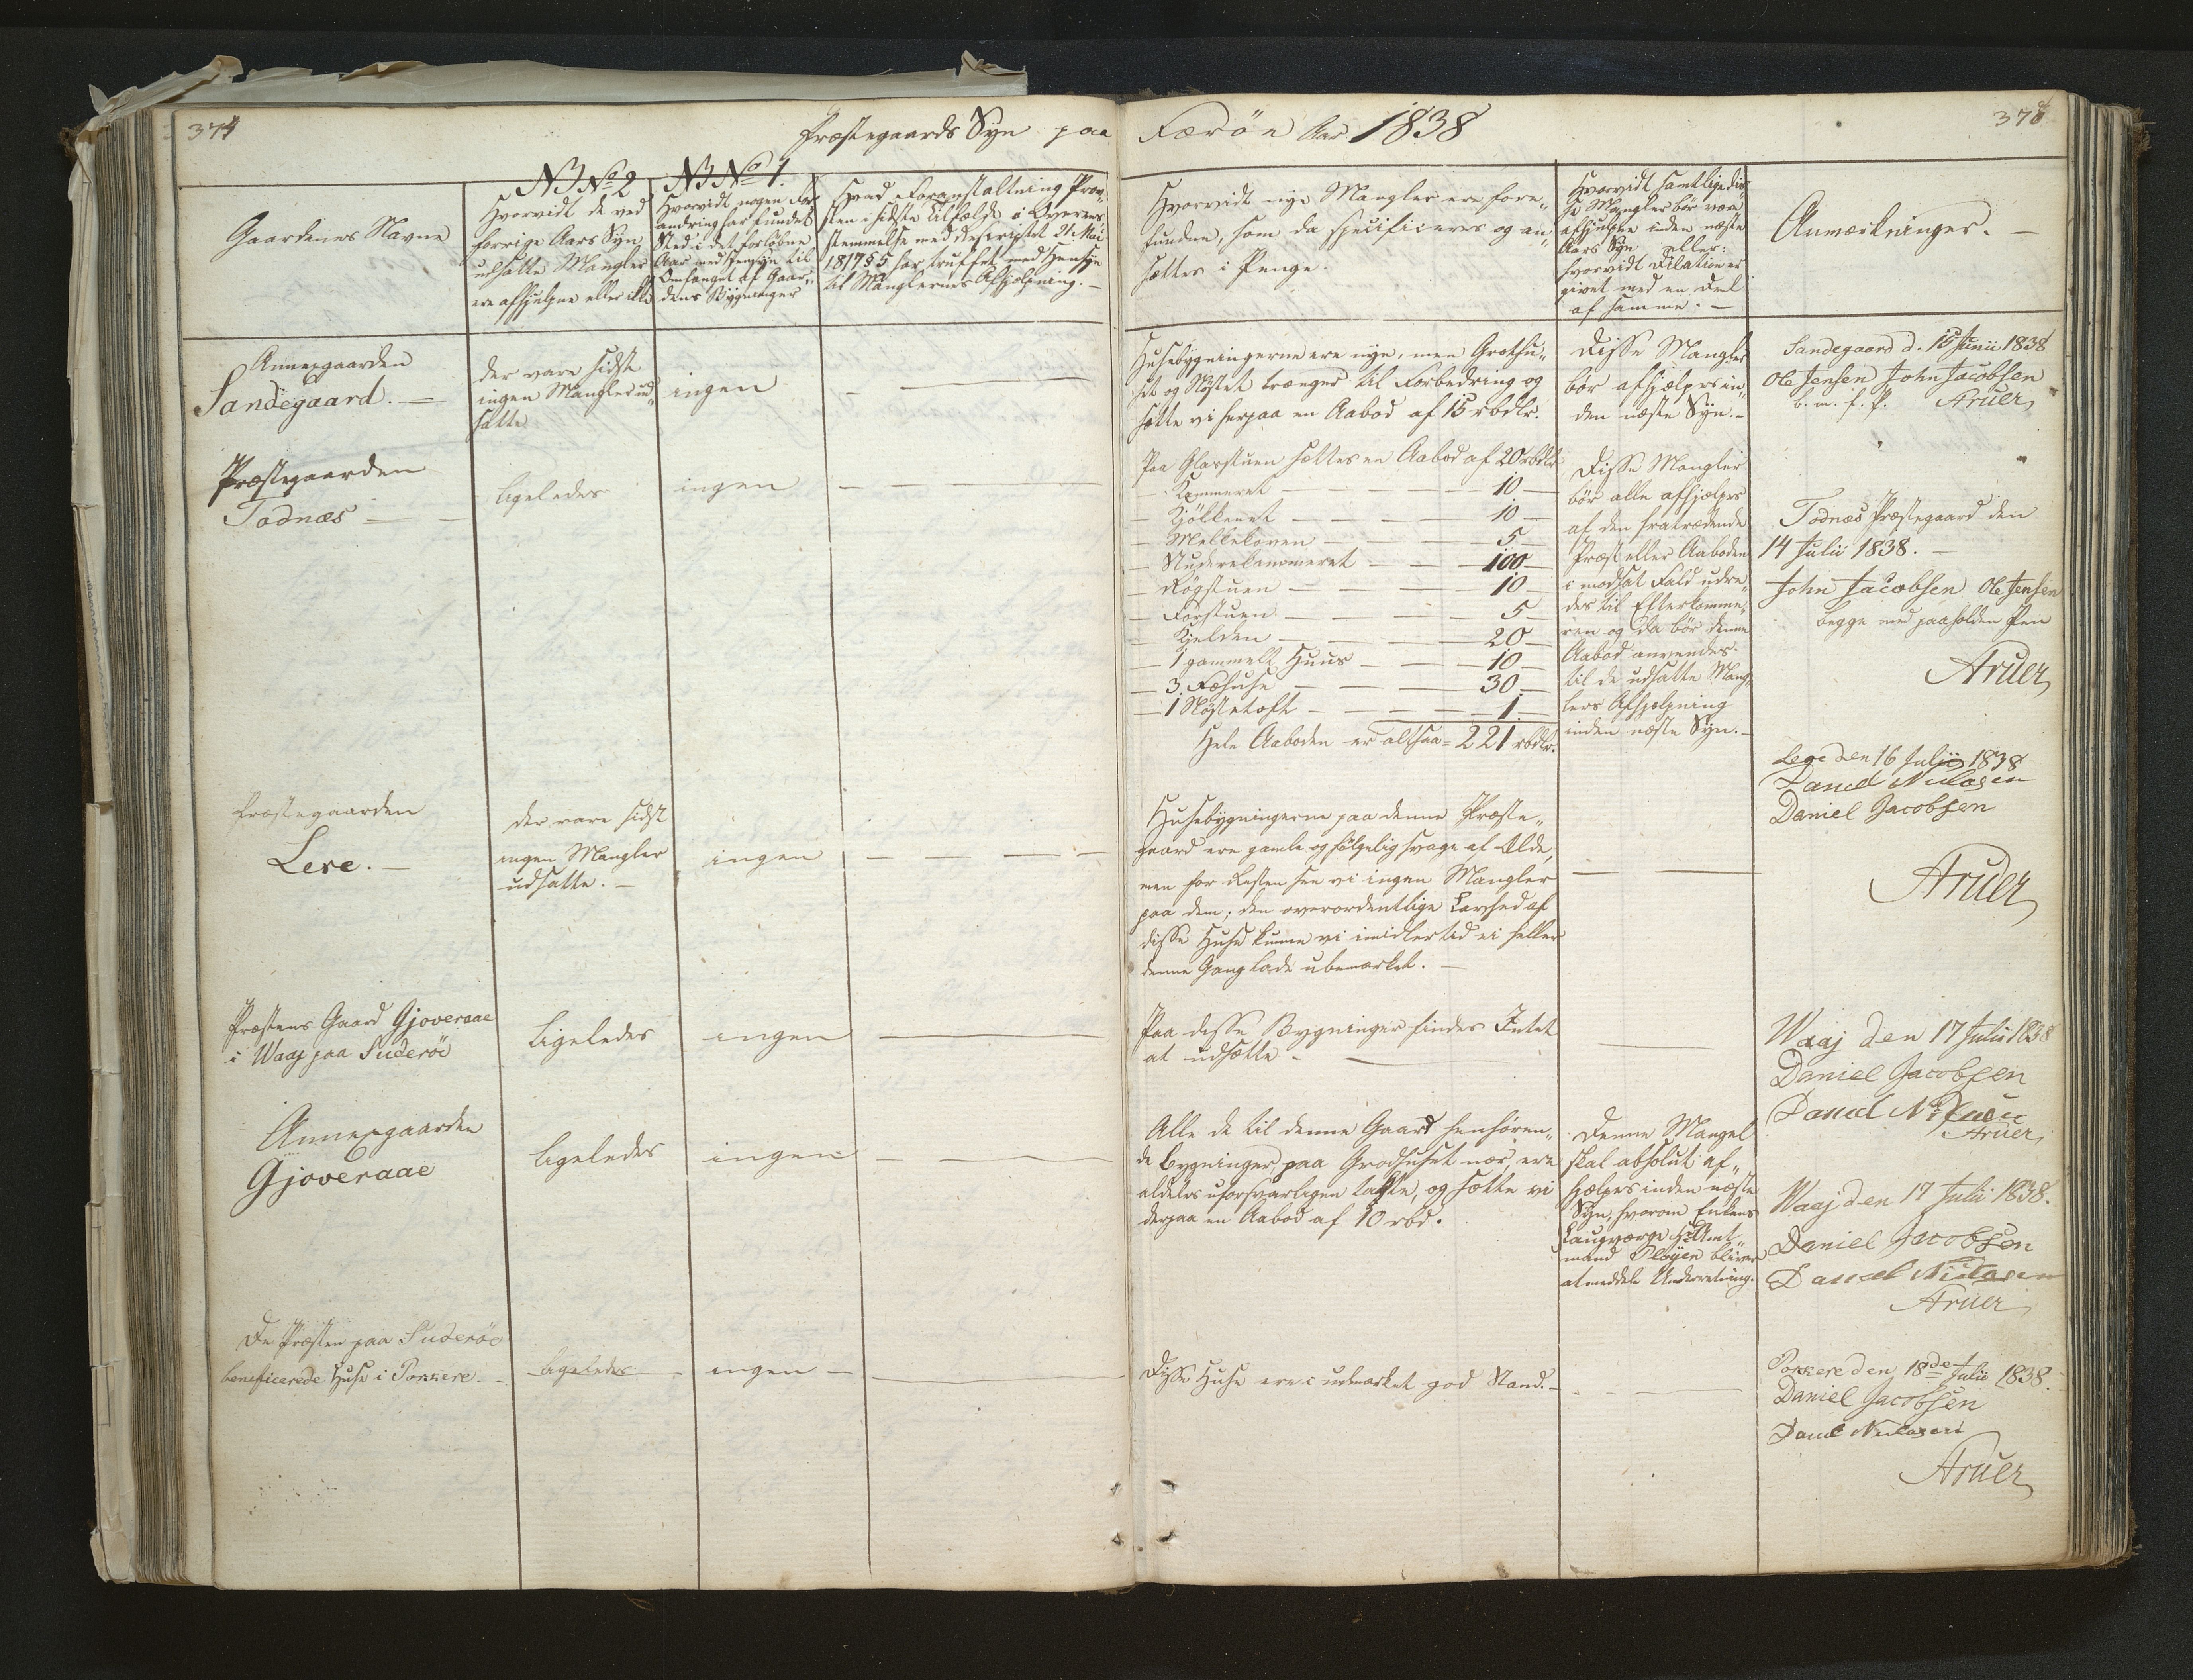 374
Præstegaards Syn paa
Færöe Aar 1838
378
Gaardenes Navne
NB No 2
Hvorvidt de ved
forrige Aars Syn
udsatte Mangler
ere afhjulpne eller ikke
NB No 1.
Hvorvidt nogen For-
andring har fundet
Sted i det forløbne
Aar med Hensyn til
Omfanget af Gaar-
dens Bygninger
Hvad Foranstaltning Prov-
sten i sidste Tilfælde i Overens-
stemmelse med Rescriptet 21 Mai
1817 § 5 har truffet med Hensyn
til Manglernes Afhjelpning. —
Hvorvidt nye Mangler ere fore-
fundne, som da specificeres og an-
sættes i Penge.
Hvorvidt samtlige dis-
se Mangler bør være
afhjulpne inden næste
Aars Syn eller:
hvorvidt Dilation er
givet med en Deel
af samme. —
Anmærkninger. —
Annexgaarden
Sandegaard. —
der vare sidste
ingen Mangler ud-
satte
ingen
Husebygningerne ere nye, men Grothu-
set og Nöstet trænger til Forbedring og
sætte vi herpaa en Aabod af 15 rbdlr.
Disse Mangler
bør afhjælpes in-
den næste Syn. —
Sandegaard d. 15 Junii 1838
Ole Jensen John Jacobsen
b. m. f. P. Aruer
Præstegaarden
Todnæs —
ligeledes
ingen
Paa Glarstuen sættes en Aabod af 20 rbdlr
— Kammeret — 10 —
— Kjökkenet — 10 —
— Mellekoven — 5 —
— Studerekammeret — 100 —
— Rögstuen — 10 —
— Forstuen — 5 —
— Kjelden — 20 —
— 1 gammelt Huus — 10 —
— 3 Fæhuse — 30 —
— 1 Nöstetoft — 1 —
Hele Aaboden er altsaa = 221 rbdlr.
Disse Mangler
bør alle afhjælpes
af den fratrædende
Præst eller Aaboden
i modsat Fald udre-
des til Efterkomme-
ren og da bør denne
Aabod anvendes
til de udsatte Mang-
lers Afhjælpning
inden næste Syn. —
Todnæs Præstegaard den
14 Julii 1838. —
John Jacobsen Ole Jensen
begge med paaholden Pen
Aruer
Præstegaarden
Lere. —
der vare sidst
ingen Mangler
udsatte. —
ingen
Husebygningerne paa denne Præste-
gaard ere gamle og fölgelig svage af Ælde,
men for Resten see vi ingen Mangler
paa dem; den overordentlige Lavhed af
disse Huse kunne vi imidlertid ei heller
denne Gang lade ubemærket. —
Lere den 16 Julii 1838
Daniel Niclasen
Daniel Jacobsen
Aruer
Præstens Gaard Gjoveraae
i Waaj paa Suderöe
ligeledes
ingen
Paa disse Bygninger findes Intet
at udsætte. —
Waaj den 17 Julii 1838
Daniel Jacobsen
Daniel Niclasen
Aruer
Annexgaarden
Gjoveraae
ligeledes
ingen
Alle de til denne Gaard henhören-
de Bygninger, paa Grodhuset nær, ere
aldeles uforsvarligen takte, og sætte vi
derpaa en Aabod af 10 rbd.
Denne Mangel
skal absolut af-
hjælpes inden næste
Syn, hvorom Enkens
Laugværge Hr. Amt-
mand Plöyen bliver
at meddele Underretning.
Waaj den 17 Julii 1838.
Daniel Jacobsen
Daniel Niclasen
Aruer
De Præsten paa Suderöe
beneficerede Huse i Porkere. —
ligeledes
ingen —
Disse Huse ere i udmærket god Stand. —
Porkere den 18de Julii 1838.
Daniel Jacobsen
Daniel Niclasen
Aruer